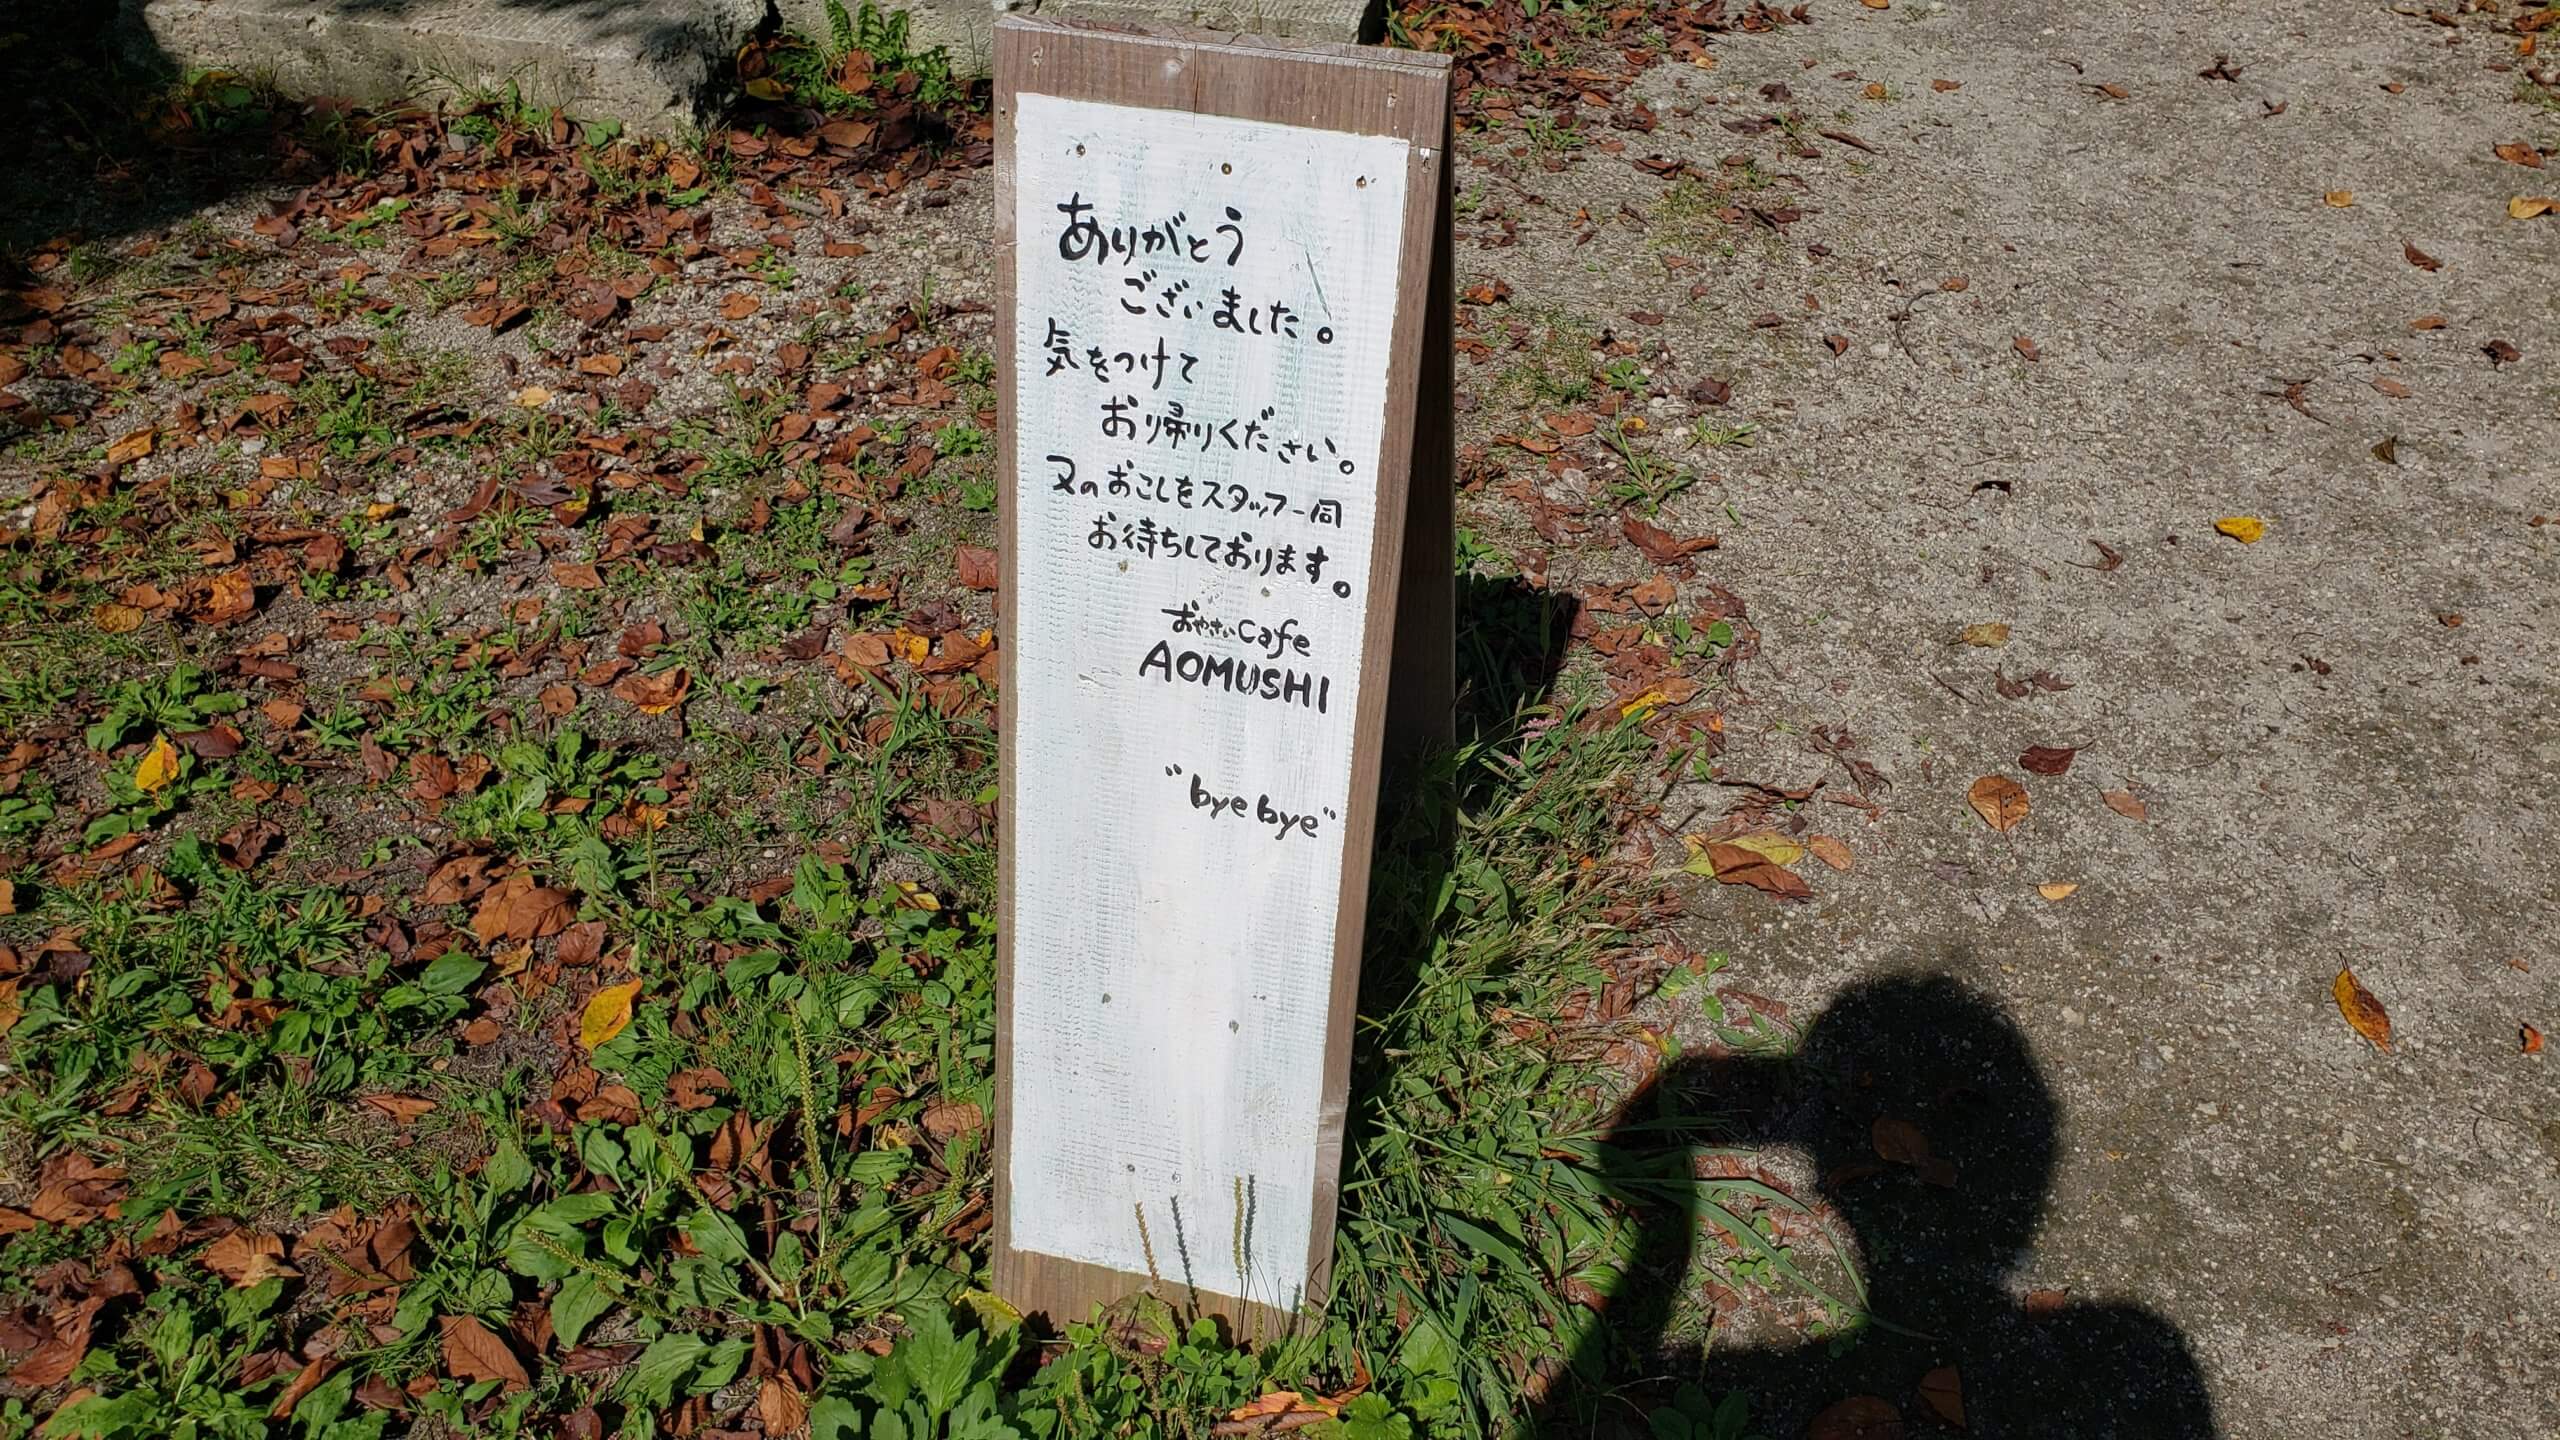 ありがとう
ございました。
気をつけて
お帰りください。
又のおこしをスタッフ一同
お待ちしております。
おやさいcafe
AOMUSHI
"bye bye"